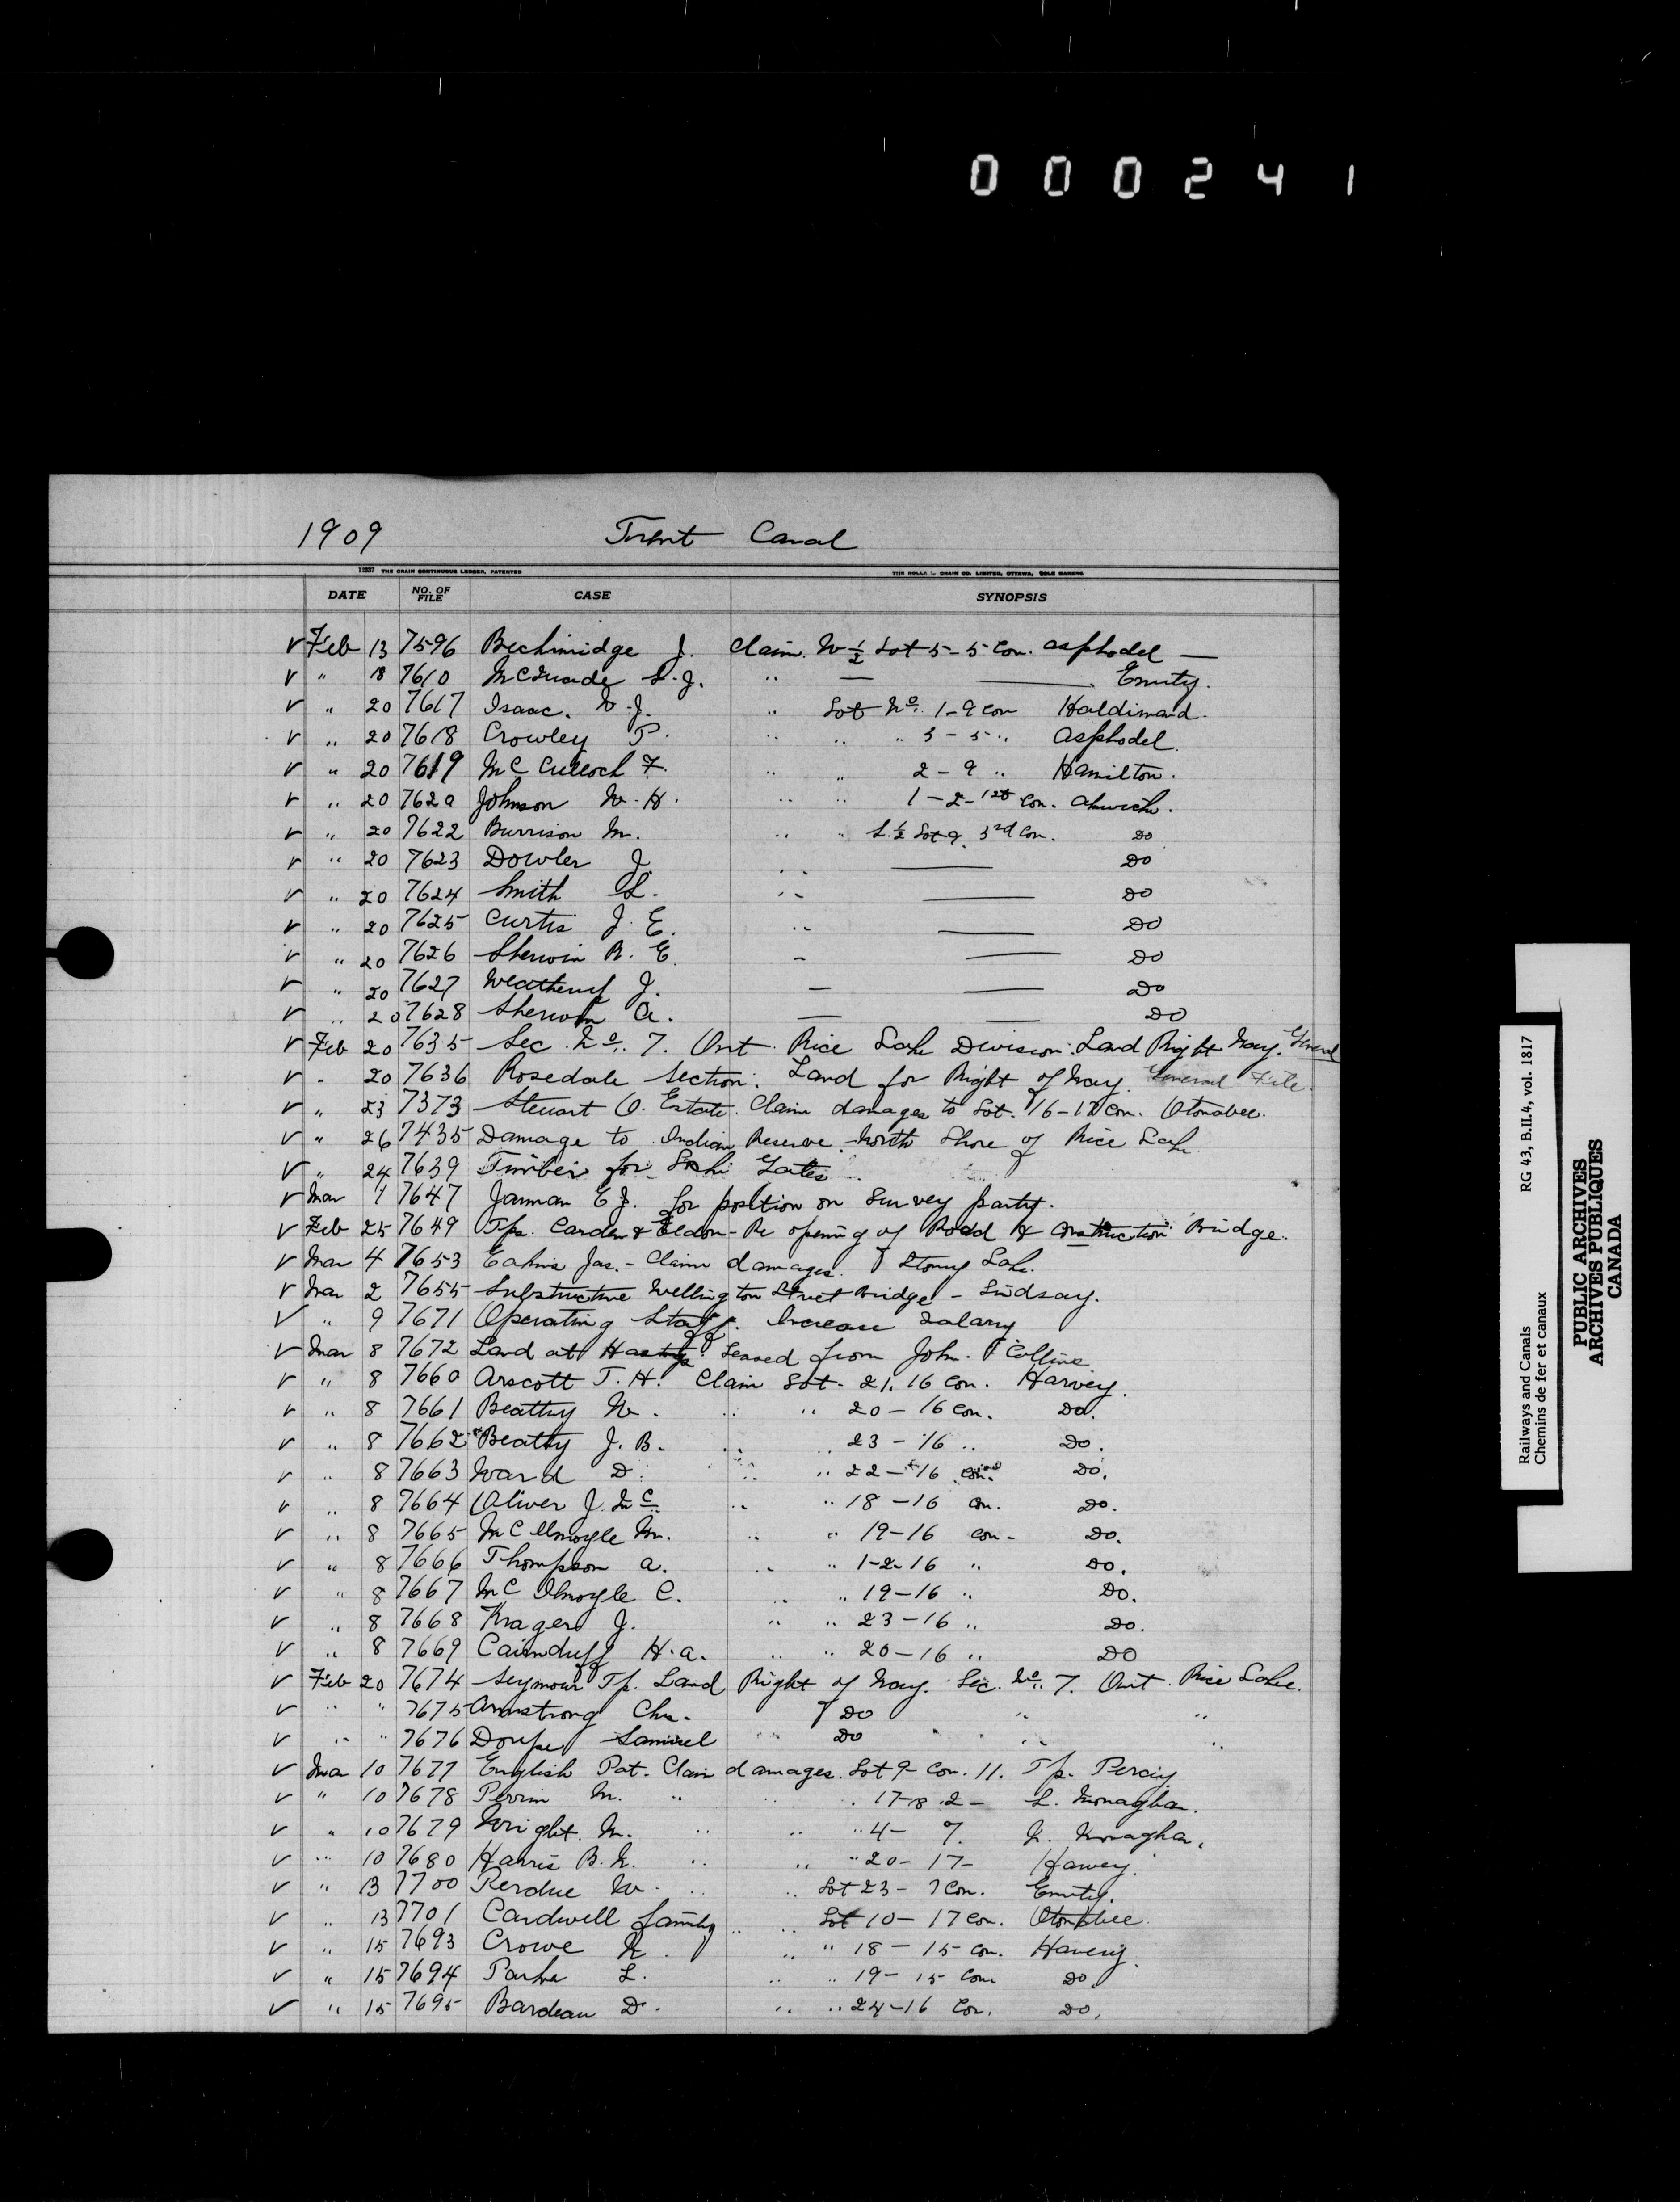 000241
1909 Trent Canal
11237 THE CRAIN CONTINUOUS LEDGER, PATENTED THE ROLLA L. CRAIN CO. LIMITED, OTTAWA, SOLE MAKERS.
DATE NO. OF FILE CASE SYNOPSIS
√ Feb 13 7596 Beckinridge J. Claim. W ½ Lot 5-5 Con. Asphodel —
√ " 18 7610 McQuade L.J. " — — Emily.
√ " 20 7617 Isaac. W.J. " Lot No. 1-9 Con Haldimand.
√ " 20 7618 Crowley P. " " " 3-5 " Asphodel.
√ " 20 7619 McCulloch F. " " 2-9 " Hamilton.
√ " 20 7620 Johnson W.H. " " 1-2-1st Con. Alnwick.
√ " 20 7622 Burrison M. " " S. ½ Lot 9. 3rd Con. Do
√ " 20 7623 Dowler J. " — Do
√ " 20 7624 Smith L. " — Do
√ " 20 7625 Curtis J.E. " — Do
√ " 20 7626 Sherwin R.E. " — Do
√ " 20 7627 Weatherup J. — — Do
√ " 20 7628 Sherwin A. — — Do
√ Feb 20 7635 Sec. No. 7. Ont. Rice Lake Division. Land Right Way. General
√ " 20 7636 Rosedale Section. Land for Right of Way. General File.
√ " 23 7373 Stewart O. Estate. Claim damages to Lot. 16-12 Con. Otonabee.
√ " 26 7435 Damage to Indian Reserve North Shore of Rice Lake
√ " 24 7639 Timber for Lock Gates
√ Mar 1 7647 Jarman E.J. for position on Survey party.
√ Feb 25 7649 Tps. Carden & Eldon - Re opening of Road & Construction Bridge.
√ Mar 4 7653 Eakins Jas. - Claim damages. Stoney Lake.
√ Mar 2 7655 Substructure Wellington Street Bridge - Lindsay.
√ " 9 7671 Operating Staff. Increase Salary
√ Mar 8 7672 Land at Hastings leased from John. Collins.
√ " 8 7660 Arscott T.H. Claim Lot. 21. 16 Con. Harvey.
√ " 8 7661 Beatty W. " " 20-16 Con. Do.
√ " 8 7662 Beatty J.B. " " 23-16 " Do.
√ " 8 7663 Ward D. " " 22-16 Con. Do.
√ " 8 7664 Oliver J. Mc " " 18-16 Con. Do.
√ " 8 7665 McIlmoyle Wm. " " 19-16 Con. Do.
√ " 8 7666 Thompson A. " " 1-2-16 " Do.
√ " 8 7667 McIlmoyle C. " " 19-16 " Do.
√ " 8 7668 Krager J. " " 23-16 " Do.
√ " 8 7669 Cairnduff H.A. " " 20-16 " Do
√ Feb 20 7674 Seymour Tp. Land Right of Way. Sec. No. 7. Ont. Rice Lake.
√ " " 7675 Armstrong Chs. Do " "
√ " " 7676 Doupe Samuel Do " "
√ Mar 10 7677 English Pat. Claim damages. Lot 9 Con. 11. Tp. Percy
√ " 10 7678 Perrin M. " " " 17-18 .2- S. Monaghan.
√ " 10 7679 Wright. M. " " " 4- 7. N. Monaghan.
√ " 10 7680 Harris B.N. " " " 20-17- Harvey.
√ " 13 7700 Perdue W. " " Lot 23-7 Con. Emily.
√ " 13 7701 Cardwell family " " Lot 10-17 Con. Otonabee.
√ " 15 7693 Crowe N. " " 18-15 Con. Harvey.
√ " 15 7694 Parker L. " " 19-15 Con Do.
√ " 15 7695 Bardeau D. " " 24-16 Con. Do.
Railways and Canals RG 43, B.II.4, vol. 1817
Chemins de fer et canaux
PUBLIC ARCHIVES
ARCHIVES PUBLIQUES
CANADA